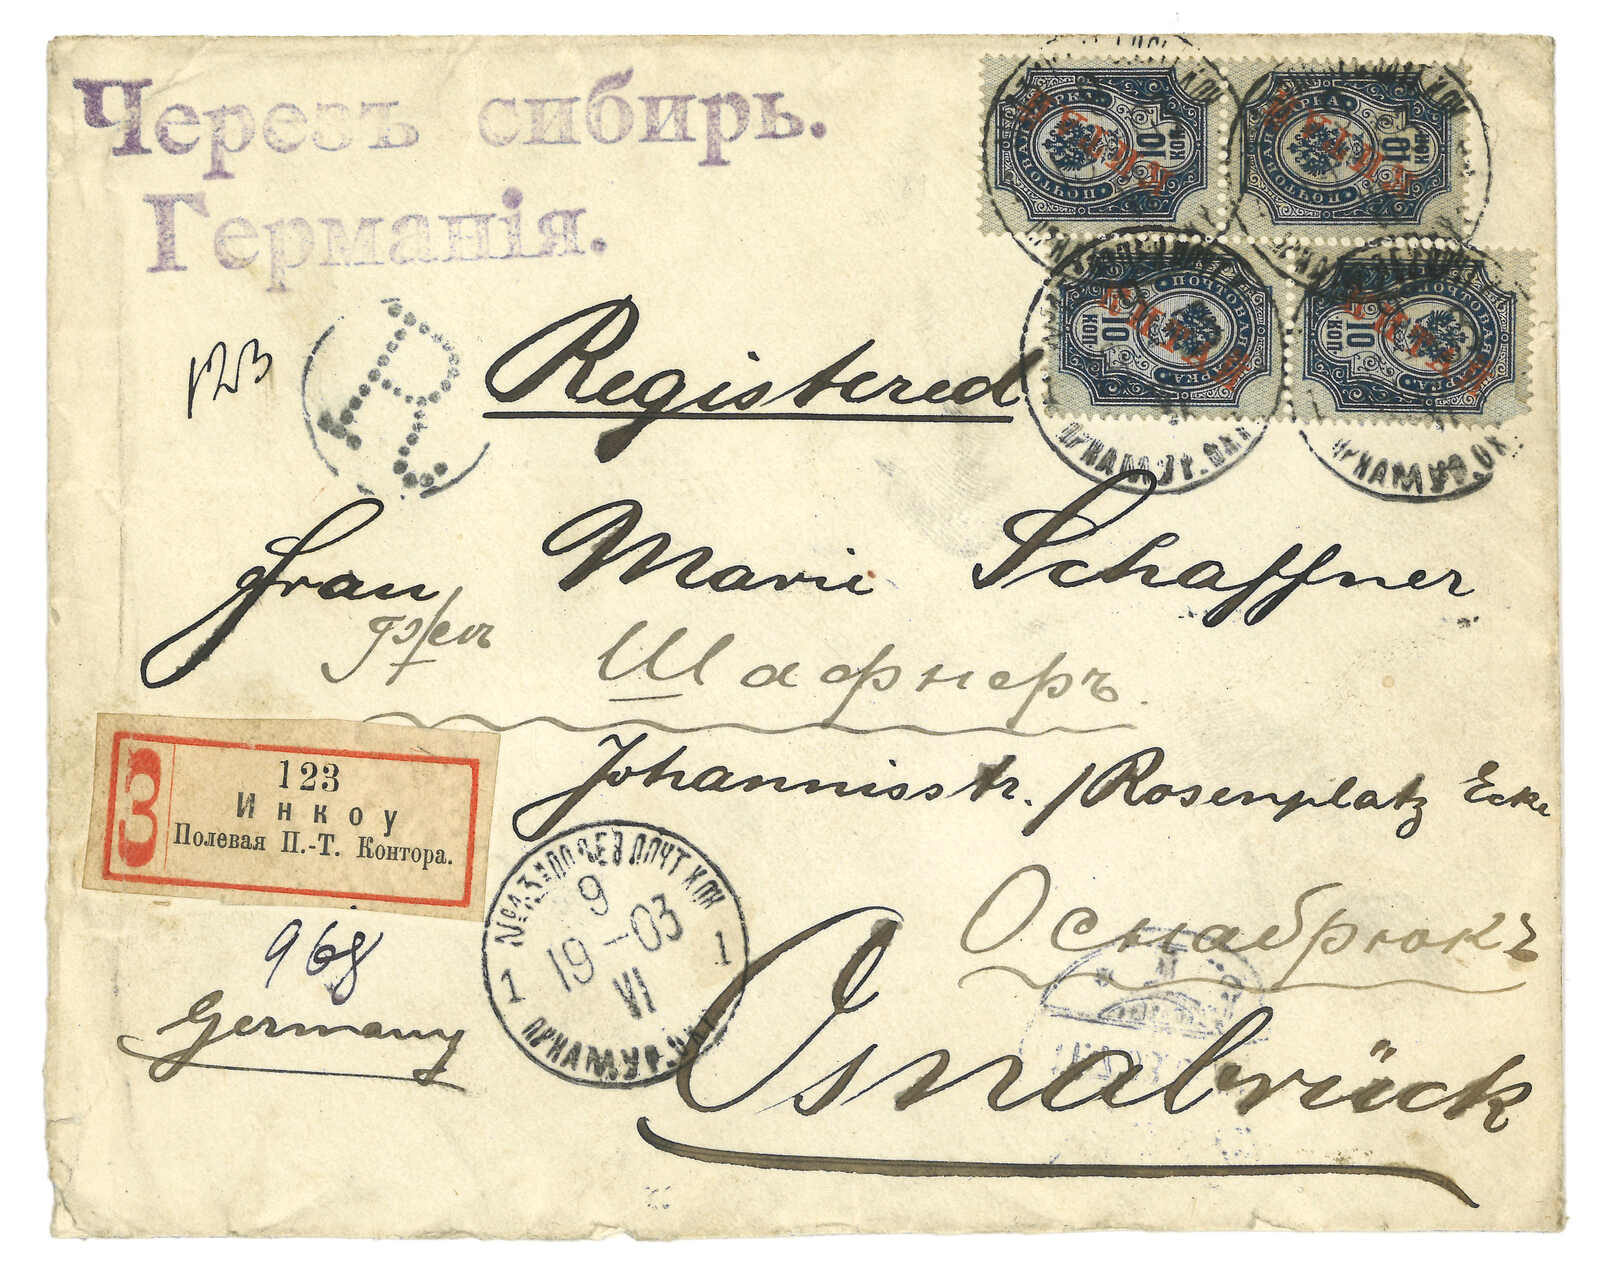 Черезъ сибирь.
Германія.
ПОЧТОВАЯ МАРКА. 10 КОП КИТАЙ
ПОЧТОВАЯ МАРКА. 10 КОП КИТАЙ
ПОЧТОВАЯ МАРКА. 10 КОП КИТАЙ
ПОЧТОВАЯ МАРКА. 10 КОП КИТАЙ
123
R
Registered
Frau Marie Schaffner
Шафнеръ.
Johannisstr./Rosenplatz Ecke
3
123
Инкоу
Полевая П.-Т. Контора.
ПОЧТ КОН
9
19-03
VI
1 1
ПРИАМУР.
Оснабрюкъ
968
Germany
Osnabrück